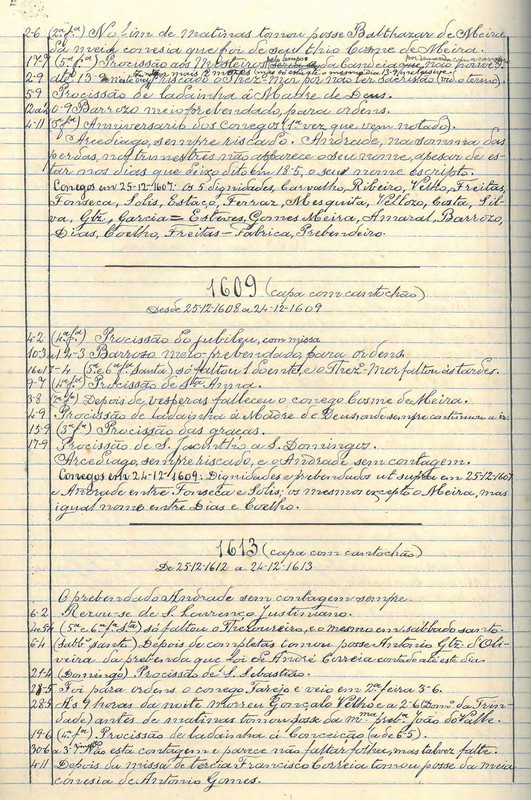 2-6 (2ª fª) No fim de matinas tomou posse Balthazar de Meira
da meia conesia que foi de seu thio Cosme de Meira.
(5ª fª) Procissão aos Mosteiros
2-9 até 13- mais 2 mezes riscado o Thez-Mor, por não haver Sacristão
5-9 Procissão de ladainha á Madre de Deus.
0-9 Barrozo meio prebendado, para ordens.
4-11 (5ª fª) Anniversario dos Conegos (1ª vez que vem notado).
Arcediago, sempre riscado. Andrade, na somma das
perdas, nos trimestres não apparece o seu nome, apesar de es-
tar nos dias que deixo dito em 18-5, o seu nome escripto.
Conegos em 25-12-1607: Os 5 dignidades, Carvalho, Ribeiro, Velho, Freitas,
Fonseca, Solis, Estaço, Ferraz, Mesquita, Vellozo, Costa, Sil-
va, Gtz, Garcia = Esteves, Gomes Meira, Amaral, Barrozo,
Dias, Coelho, Freitas - Fabrica, Prebendeiro.
1609 (capa com cantochão)
Desde 25-12-1608 a 24-12-1609
4-2 (4ª fª) Procissão do jubileu, com missa
10-3 a 14-3 Barroso meio-prebendado, para ordens.
16 e 17-4 (5ª e 6ª fª santa) só faltou 1 doente, e o Thez-Mor faltou ás tardes.
(4ª fª) Procissão de Stª Anna.
3-8 (2ª fª) Depois de vesperas falleceu o conego Cosme de Meira.
4-9 Procissão de ladainha á Madre de Deus, onde sempre continuou a ir.
15-9 (3ª fª) Procissão das graças.
17-9 Procissão de S. Jacintho a S. Domingos.
Arcediago, sempre riscado, e o Andrade sem contagem.
Conegos em 24-12-1609: Dignidades e prebendados ut supra em 25-12-1607
e Andrade entre Fonseca e Solis; os mesmos excepto o Meira, mas
igual nome entre Dias e Coelho.
1613 (capa com cantochão)
De 25-12-1612 a 24-12-1613
O prebendado Andrade sem contagem sempre.
6-2 Rezou-se de S. Lourenço Justiniano.
4 e 5-4 (5ª e 6ª fª Stª) só faltou o Thezoureiro, e o mesmo em sabbado santo.
6-4 (Sabbº santº) Depois de completas tomou posse Antonio Gtz d'Oli-
veira da prebenda que foi de André Correia contado até este dia.
21-4 (Domingo) Procissão de S. Sebastião.
28-5 Foi para ordens o conego Tarejo e veio em 2ª feira 3-6.
28-5 As 9 horas da noite morreu Gonçalo Velho e a 2-6 (Domº da Trin-
dade) antes de matinas tomou posse da mª prebª João do Valle.
19-6 (4ª fª) Procissão de ladainha á Conceição
30-6 a 3-7 Não está contagem e parece não faltar folha, mas talvez falte.
4-11 Depois da missa de tercia Francisco Correia tomou posse da meia
conesia de Antonio Gomes.